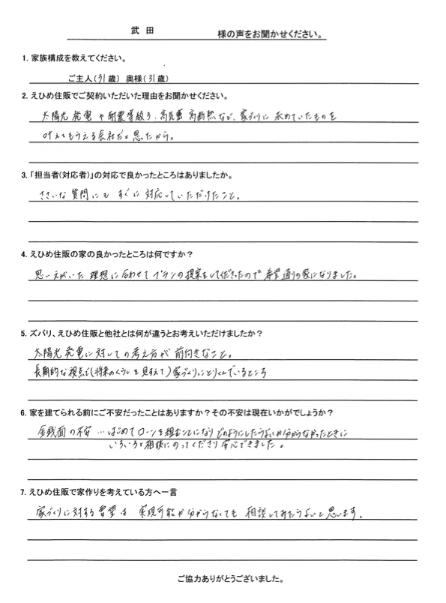 武田 様の声をお聞かせください。
1. 家族構成を教えてください。
ご主人(31歳) 奥様(31歳)
2. えひめ住販でご契約いただいた理由をお聞かせください。
太陽光発電や耐震等級3、高気密高断熱など、家づくりに求めていたものを
叶えてもらえる会社だと思ったから。
3. 「担当者(対応者)」の対応で良かったところはありましたか。
ささいな質問にもすぐに対応していただけたこと。
4. えひめ住販の家の良かったところは何ですか?
思いえがいた理想に合わせてプランの提案をしてくださったので希望通りの家になりました。
5. ズバリ、えひめ住販と他社とは何が違うとお考えいただけましたか?
太陽光発電に対しての考え方が前向きなこと。
長期的な視点で(将来のくらしを見すえて)家づくりにとりくんでいるところ
6. 家を建てられる前にご不安だったことはありますか?その不安は現在いかがでしょうか?
金銭面の不安…はじめてローンを組むことになりどのようにしたらよいか分からなかったときに
いろいろと相談にのってくださり安心できました。
7. えひめ住販で家作りを考えている方へ一言
家づくりに対する希望は実現可能か分からなくても相談してみたらよいと思います。
ご協力ありがとうございました。